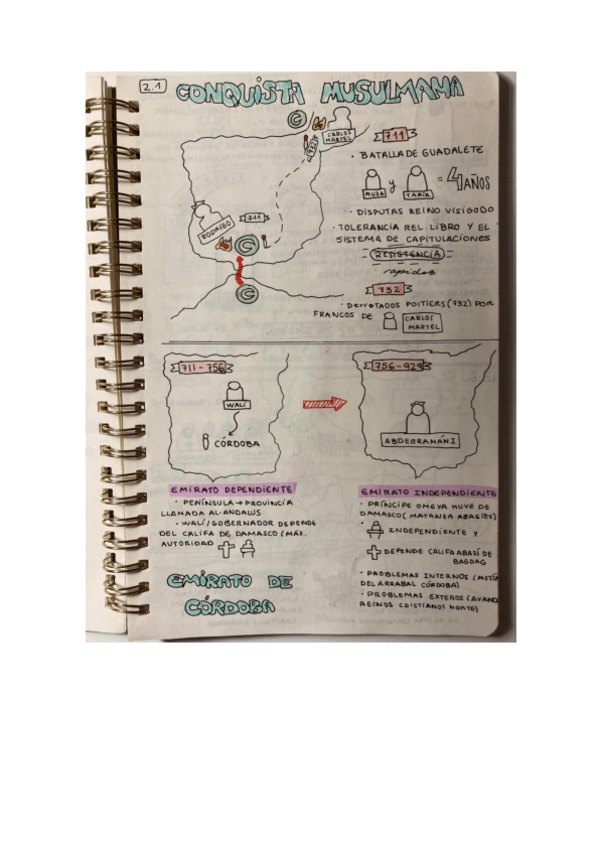 2.1 CONQUISTA MUSULMANA
C
CARLOS
MARTEL
732
711
· BATALLA DE GUADALETE
MUZA y TARIK = 4 AÑOS
· DISPUTAS REINO VISIGODO
· TOLERANCIA REL LIBRO Y EL
SISTEMA DE CAPITULACIONES
RESISTENCIA
rapidas
732
· DERROTADOS POITIERS (732) POR
FRANCOS DE CARLOS
MARTEL
RODRIGO
711
C
C
711-756
WALÍ
CÓRDOBA
EMIRATO DEPENDIENTE
· PENÍNSULA → PROVINCIA
LLAMADA AL-ANDALUS
· WALÍ/GOBERNADOR DEPENDE
DEL CALIFA DE DAMASCO (MÁX.
AUTORIDAD
EMIRATO DE
CÓRDOBA
756-929
ABDERRAMÁN I
EMIRATO INDEPENDIENTE
· PRÍNCIPE OMEYA HUYE DE
DAMASCO (MATANZA ABASÍES)
· INDEPENDIENTE Y
DEPENDE CALIFA ABASÍ DE
BAGDAG
· PROBLEMAS INTERNOS (MOTÍN
DEL ARRABAL CÓRDOBA)
· PROBLEMAS EXTEROS (AVANC
REINOS CRISTIANOS NORTE)